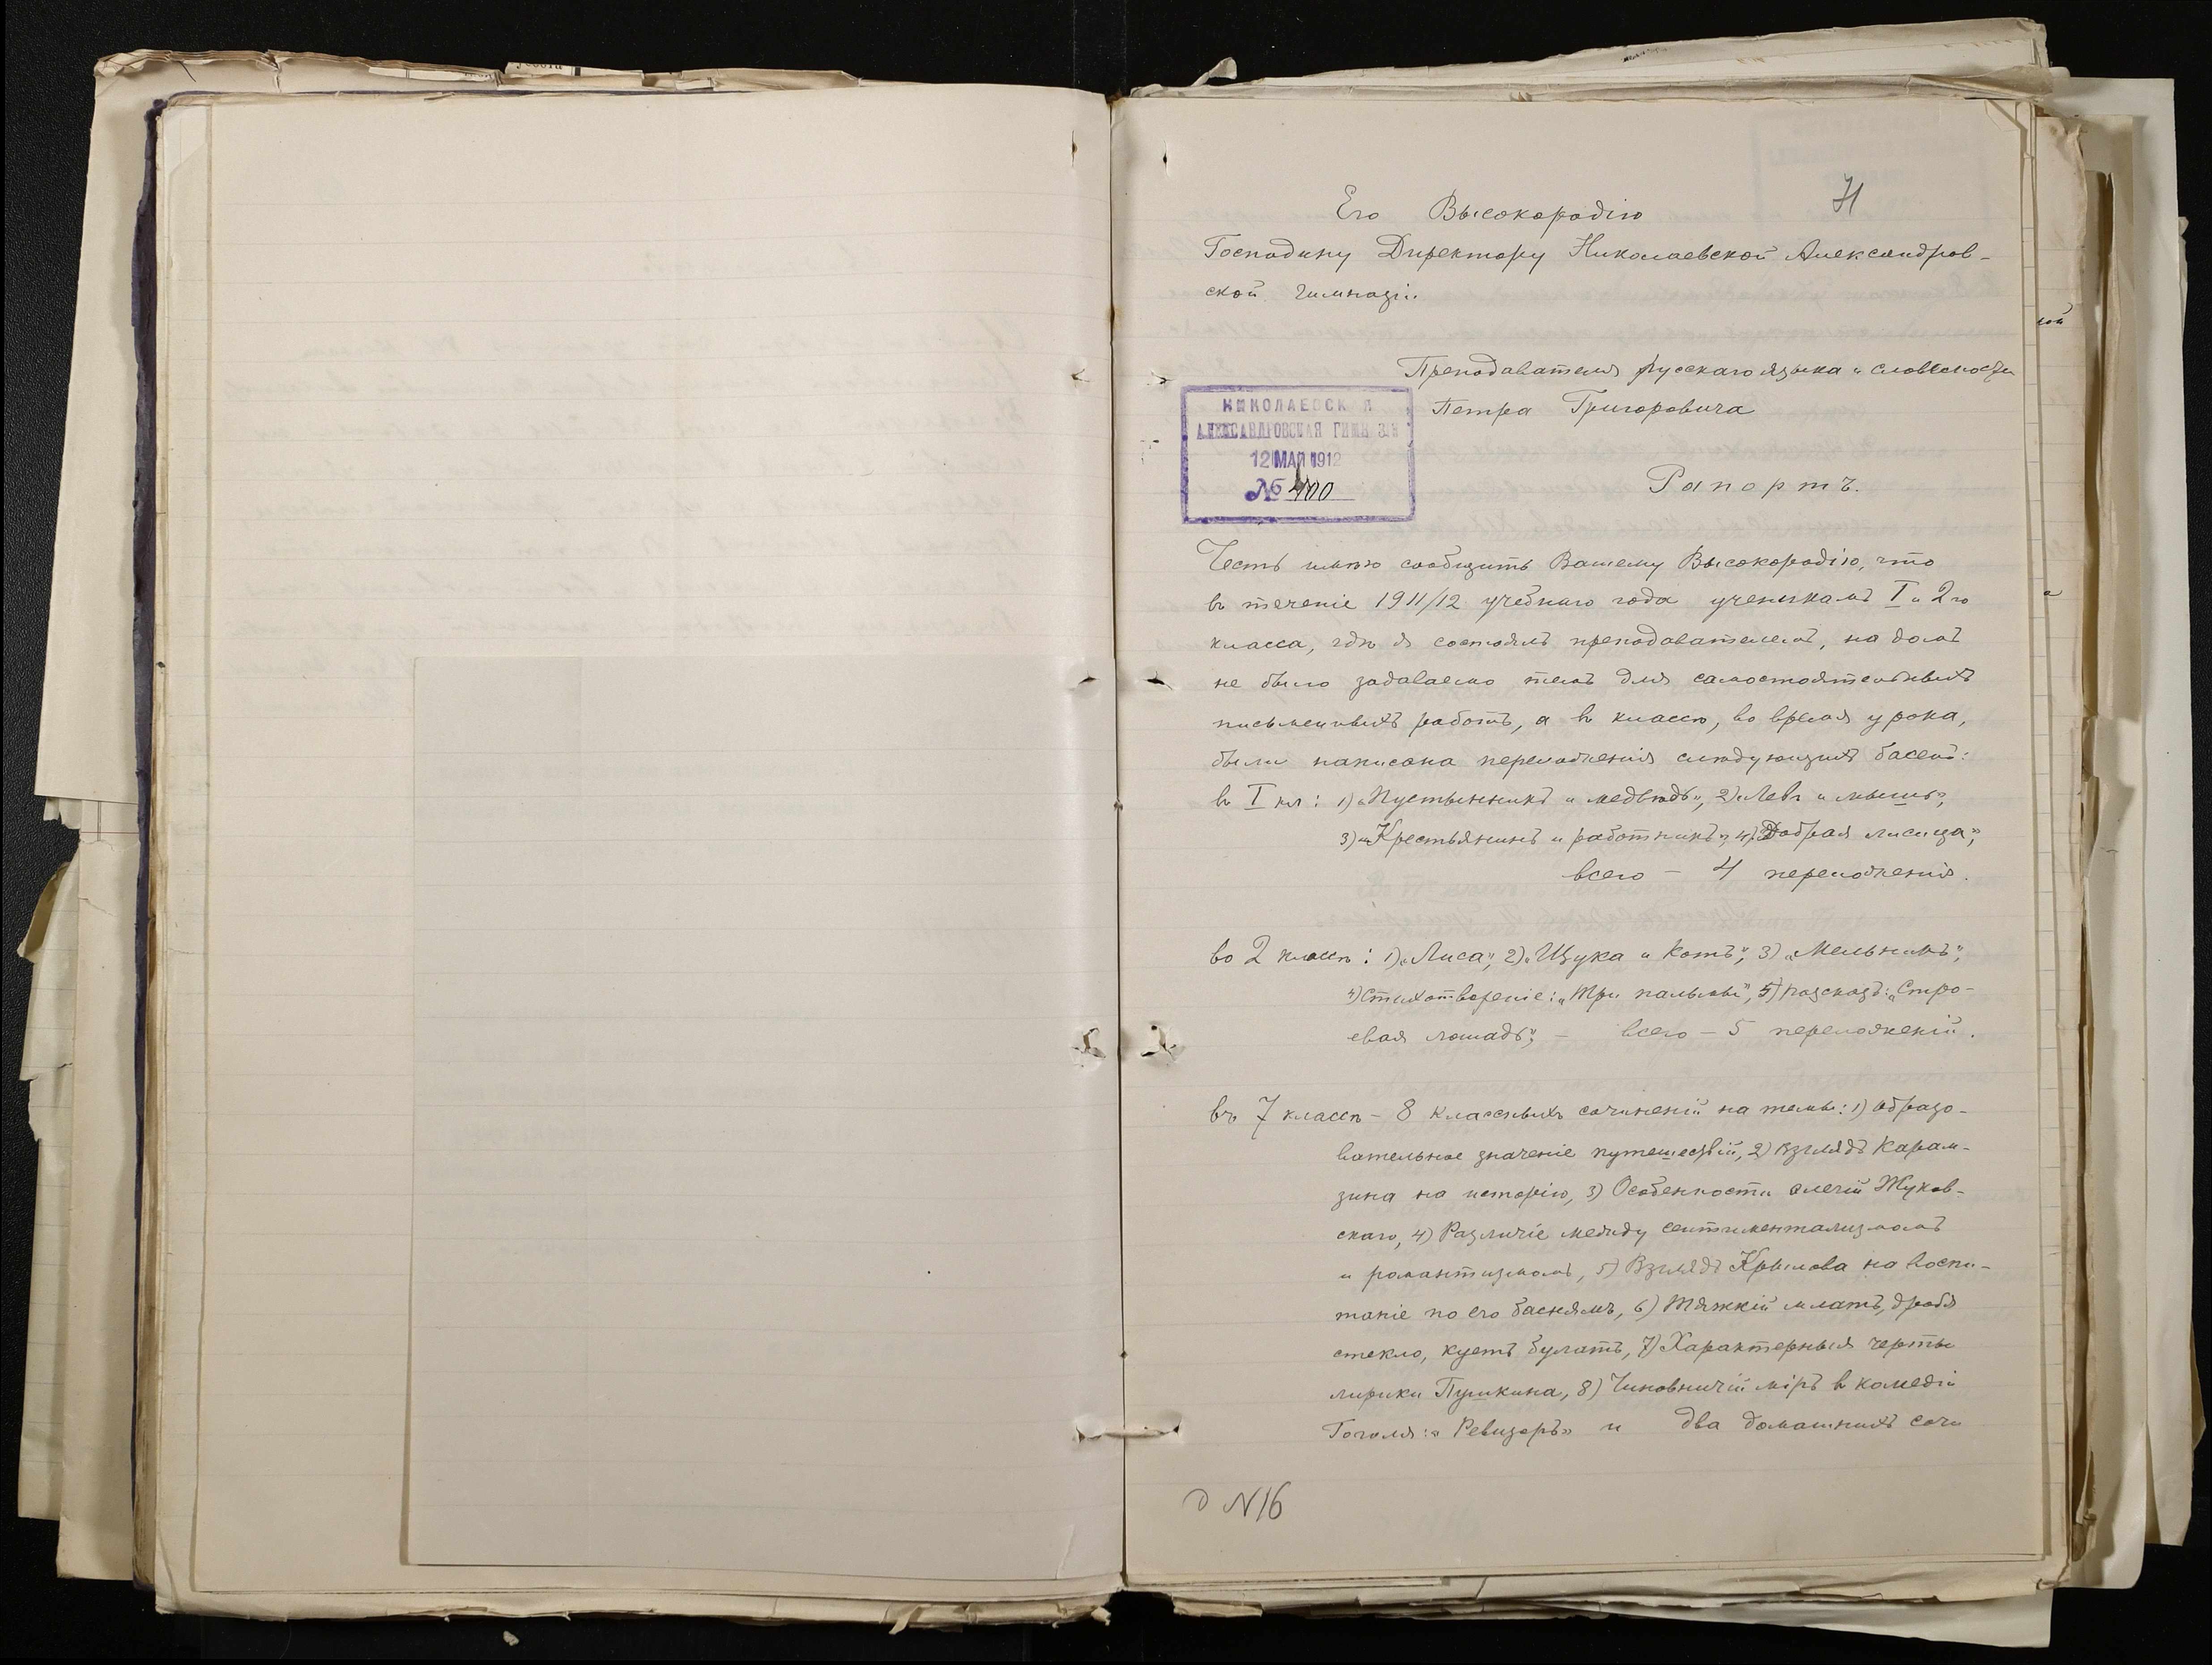 Его Высокородію
Господину Директору Николаевской Александров-
ской гимназіи
Преподавателя русскаго языка и словесности
Петра Григоровича
НИКОЛАЕВСК Я
АЛЕКСАНДРОВСКАЯ ГИМН ЗІЯ
12 МАЯ 1912
№ 400
Рапортъ.
Честь имѣю сообщить Вашему Высокородію, что
въ теченіе 1911/12 учебнаго года ученикамъ I и 2го
класса, гдѣ я состоялъ преподавателемъ, на домъ
не было задаваемо темъ для самостоятельныхъ
письменныхъ работъ, а въ классѣ, во время урока,
были написана переложенія слѣдующихъ басенъ:
въ I кл: 1) „Пустынникъ и медвѣдь", 2) „Левъ и мышь",
3) „Крестьянинъ и работникъ", 4) „Добрая лисица",
всего – 4 переложенія.
во 2 классѣ: 1) „Лиса", 2) „Щука и Котъ", 3) „Мельникъ",
4) Стихотвореніе: „Три пальмы", 5) разсказъ: „Стро-
евая лошадь", – всего – 5 переложеній.
въ 7 классѣ – 8 классныхъ сочиненій на темы: 1) Образо-
вательное значеніе путешествій, 2) Взглядъ Карам-
зина на исторію, 3) Особенности элегій Жуков-
скаго, 4) Различіе между сентиментализмомъ
и романтизмомъ, 5) Взглядъ Крылова на воспи-
таніе по его баснямъ, 6) Тяжкій млатъ, дробя
стекло, куетъ булатъ, 7) Характерныя черты
лирики Пушкина, 8) Чиновничій міръ въ комедіи
Гоголя: „Ревизоръ" и два домашнихъ сочи
д N 16